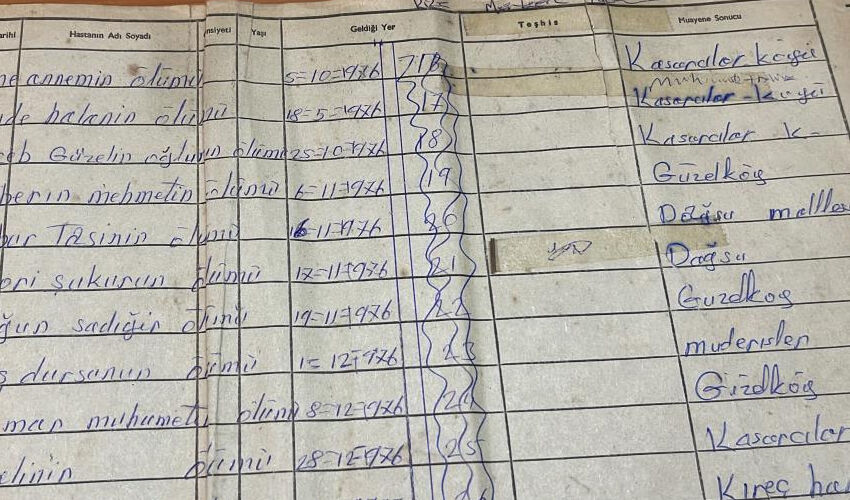 arihi Hastanın Adı Soyadı nsiyeti Yaşı Geldiği Yer Teşhis Muayene Sonucu
ne annemin ölümü 5=10=1976 Kasarcılar köyü
de halanin ölümü 18=5=1976 17 Kasarcılar-köyü
eb Güzelin oğlunun ölümü 25=10=1976 18 Kasarcılar k-
berin mehmetin ölümü 6=11=1976 19 Güzelköy
bar Tasinin ölümü 16=11=1976 20 Dağsu malles
oni şukurun ölümü 17=11=1976 21 Dağsu
ğun sadiğin ölümü 19=11=1976 22 Guzelkoy
ş dursunun ölümü 1=12=1976 23 muderısler
man muhametin ölümü 8=12=1976 24 Güzelköy
elinin ölümü 28=12=1976 25 Kasarcılar
Kireç ha